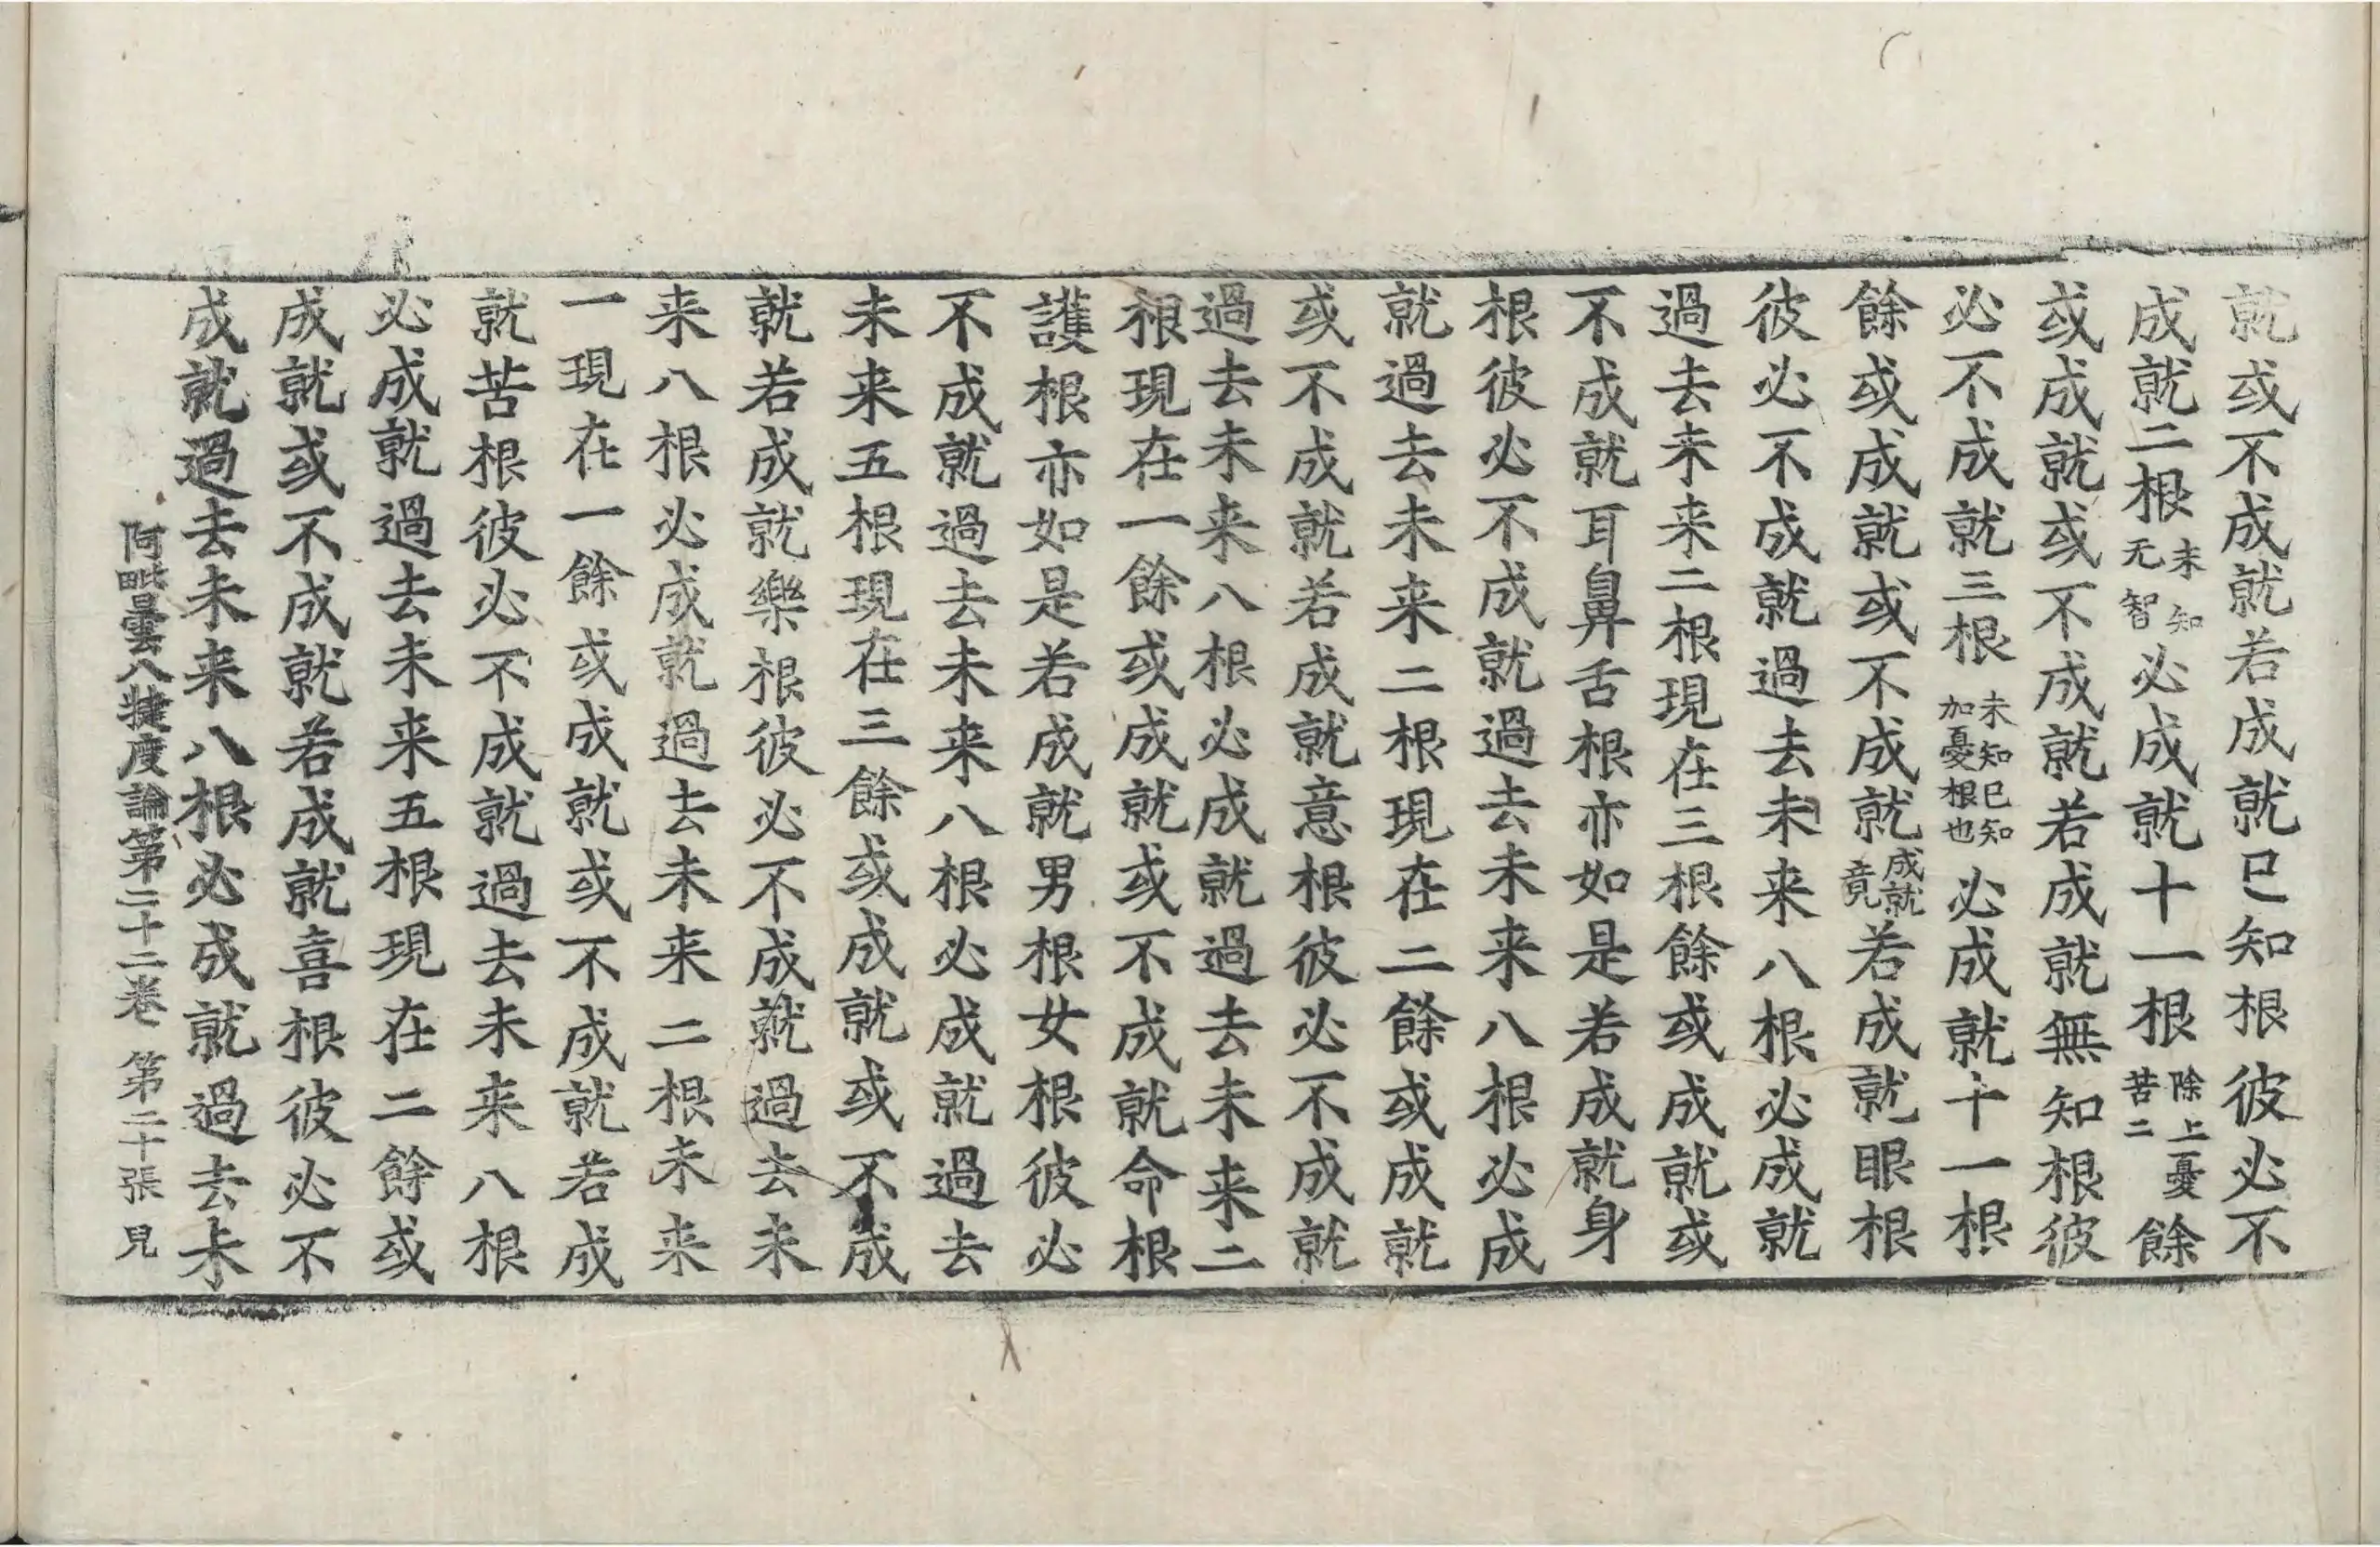 就或不成就若成就已知根彼必不
成就二根未知无智必成就十一根除上憂苦二餘
或成就或不成就若成就無知根彼
必不成就三根未知已知加憂根也必成就十一根
餘或成就或不成就成就竟若成就眼根
彼必不成就過去未来八根必成就
過去未来二根現在三根餘或成就或
不成就耳鼻舌根亦如是若成就身
根彼必不成就過去未来八根必成
就過去未来二根現在二餘或成就
或不成就若成就意根彼必不成就
過去未来八根必成就過去未来二
根現在一餘或成就或不成就命根
護根亦如是若成就男根女根彼必
不成就過去未来八根必成就過去
未来五根現在三餘或成就或不成
就若成就樂根彼必不成就過去未
来八根必成就過去未来二根未来
一現在一餘或成就或不成就若成
就苦根彼必不成就過去未来八根
必成就過去未来五根現在二餘或
成就或不成就若成就喜根彼必不
成就過去未来八根必成就過去未
阿毗曇八揵度論第二十二卷 第二十張 見